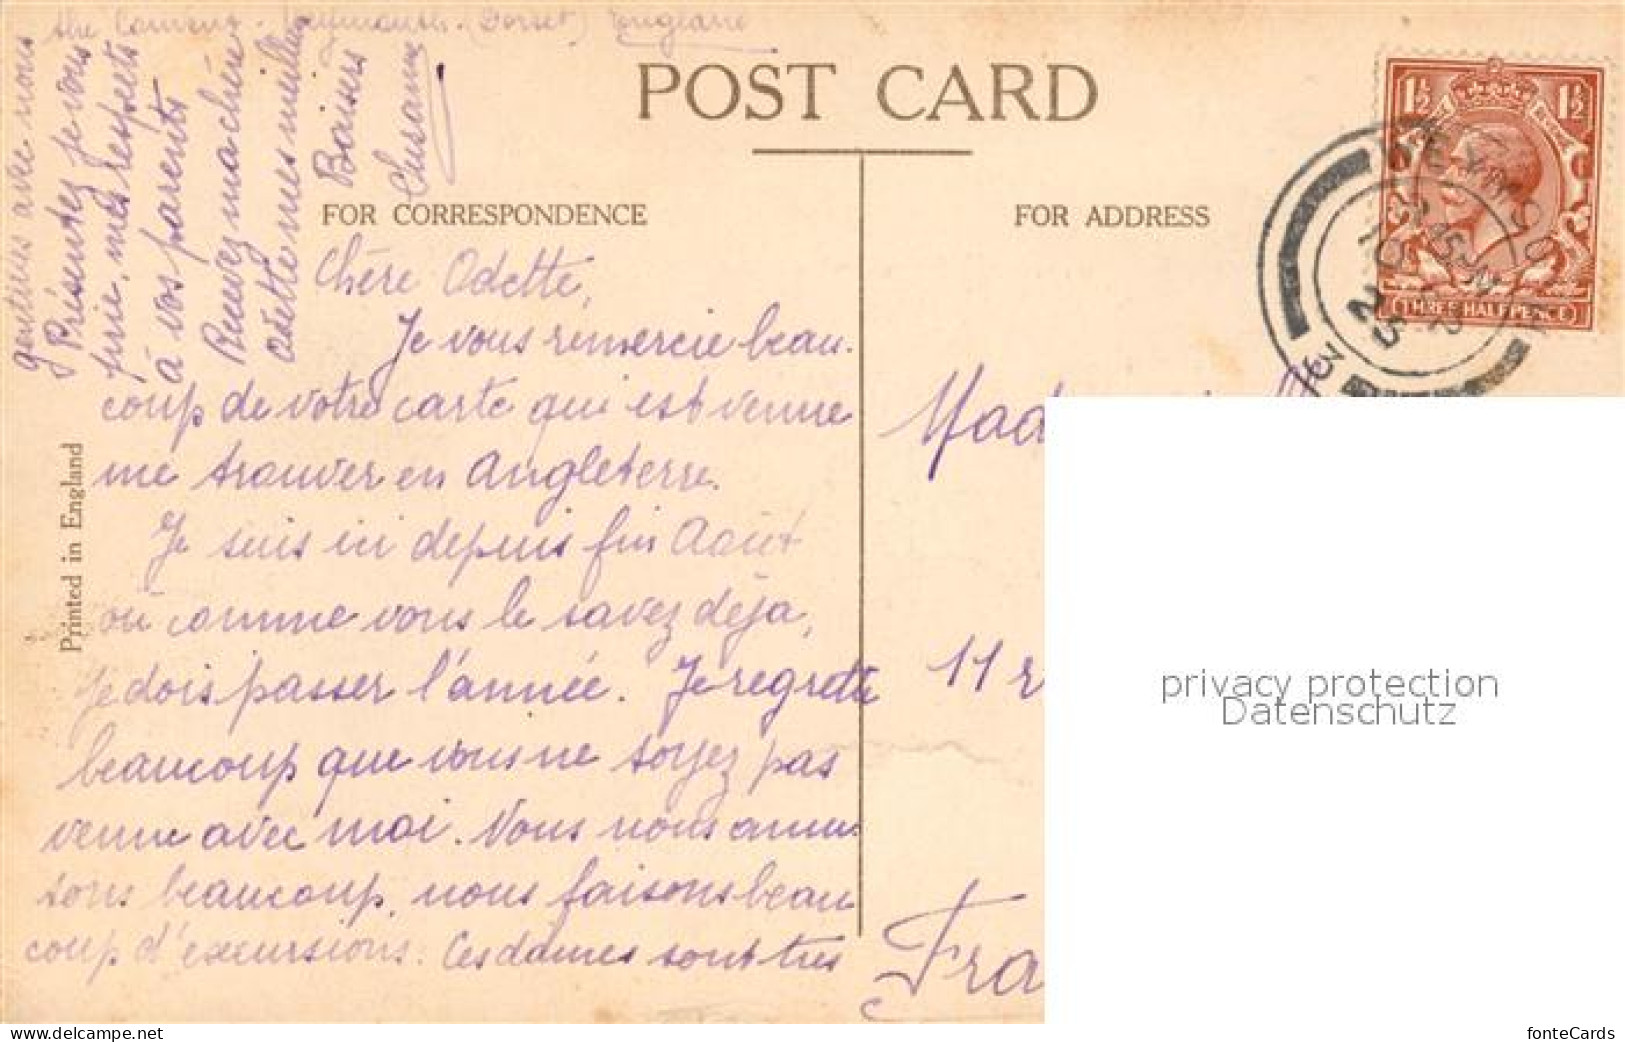 the Convent. Weymouth. (Dorset) England
POST CARD
FOR CORRESPONDENCE
FOR ADDRESS
Chère Odette,
Je vous remercie beau-
coup de votre carte qui est venue
me trouver en Angleterre.
Je suis ici depuis fin Août
où comme vous le savez déja,
je dois passer l'année. Je regrette
beaucoup que vous ne soyez pas
venue avec moi. Nous nous amu-
sons beaucoup, nous faisons beau
coup d'excursions. Ces dames sont très
gentilles avec nous
Présentez je vous
prie, mes respects
à vos parents
Recevez ma chère
Odette mes meilleurs
Baisers
Susanne
Printed in England
1½ 1½
THREE HALFPENCE
WEYMOUTH
3
25
Mad
11 r
Fra
privacy protection
Datenschutz
www.delcampe.net
fonteCards